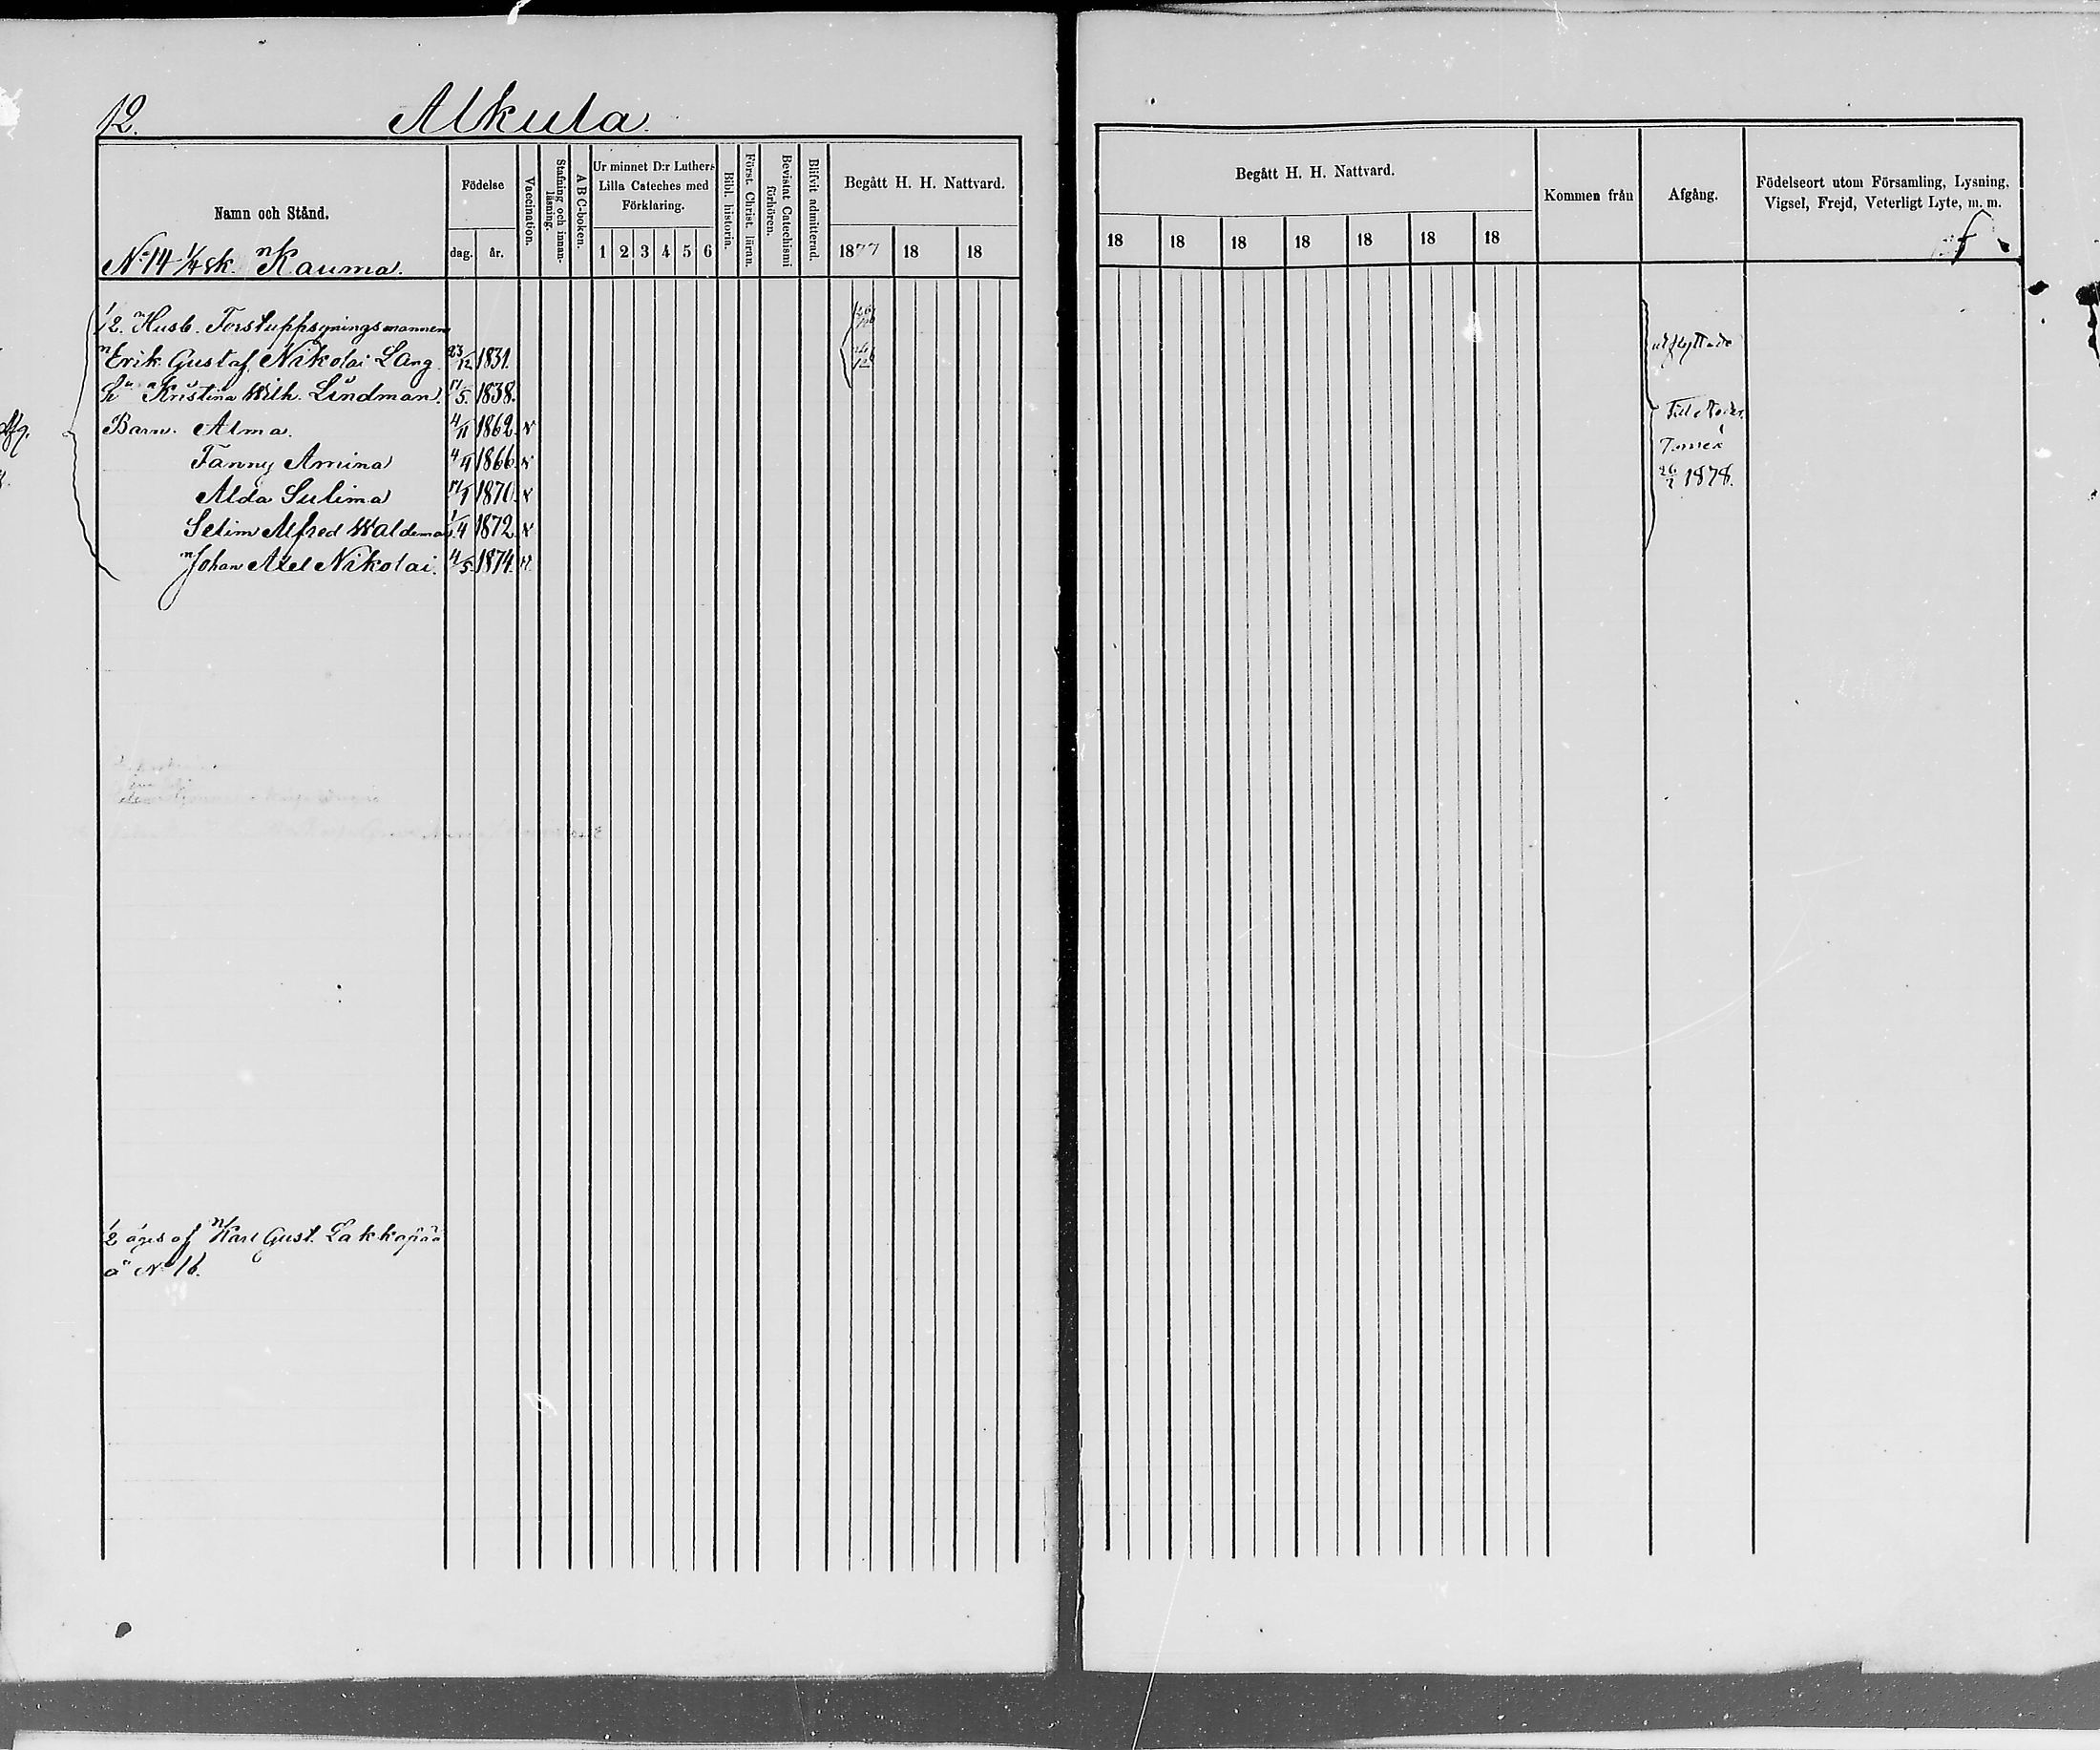 12.
Alkula.
Namn och Stånd.
Födelse
dag.
år.
Vaccination.
Stafning och innan-
läsning.
A B C-boken.
Ur minnet D:r Luthers
Lilla Cateches med
Förklaring.
1 2 3 4 5 6
Bibl. historia.
Först. Christ. läran.
Bevistat Catechismi
förhören.
Blifvit admitterad.
Begått H. H. Nattvard.
1877 18 18
Begått H. H. Nattvard.
18 18 18 18 18 18 18
Kommen från
Afgång.
Födelseort utom Församling, Lysning,
Vigsel, Frejd, Veterligt Lyte, m. m.
No 14 1/4 sk. Kauma.
1/2. Husb. Forstuppsyningsmannen
Erik Gustaf Nikolai Lang 23/12 1831.
h Kristina Wilh. Lindman. 17/5. 1838.
Barn. Alma. 4/11 1862. v
Fanny Amina 4/4 1866. v
Alda Sulima 17/1 1870. v
Selim Alfred Waldemar 1/4 1872. v
Johan Axel Nikolai. 4/5. 1874. v
utflyttade
Till Neder
Torneå
1878.
1/2 äges af Karl Gust. Lakkapää
å No 16.